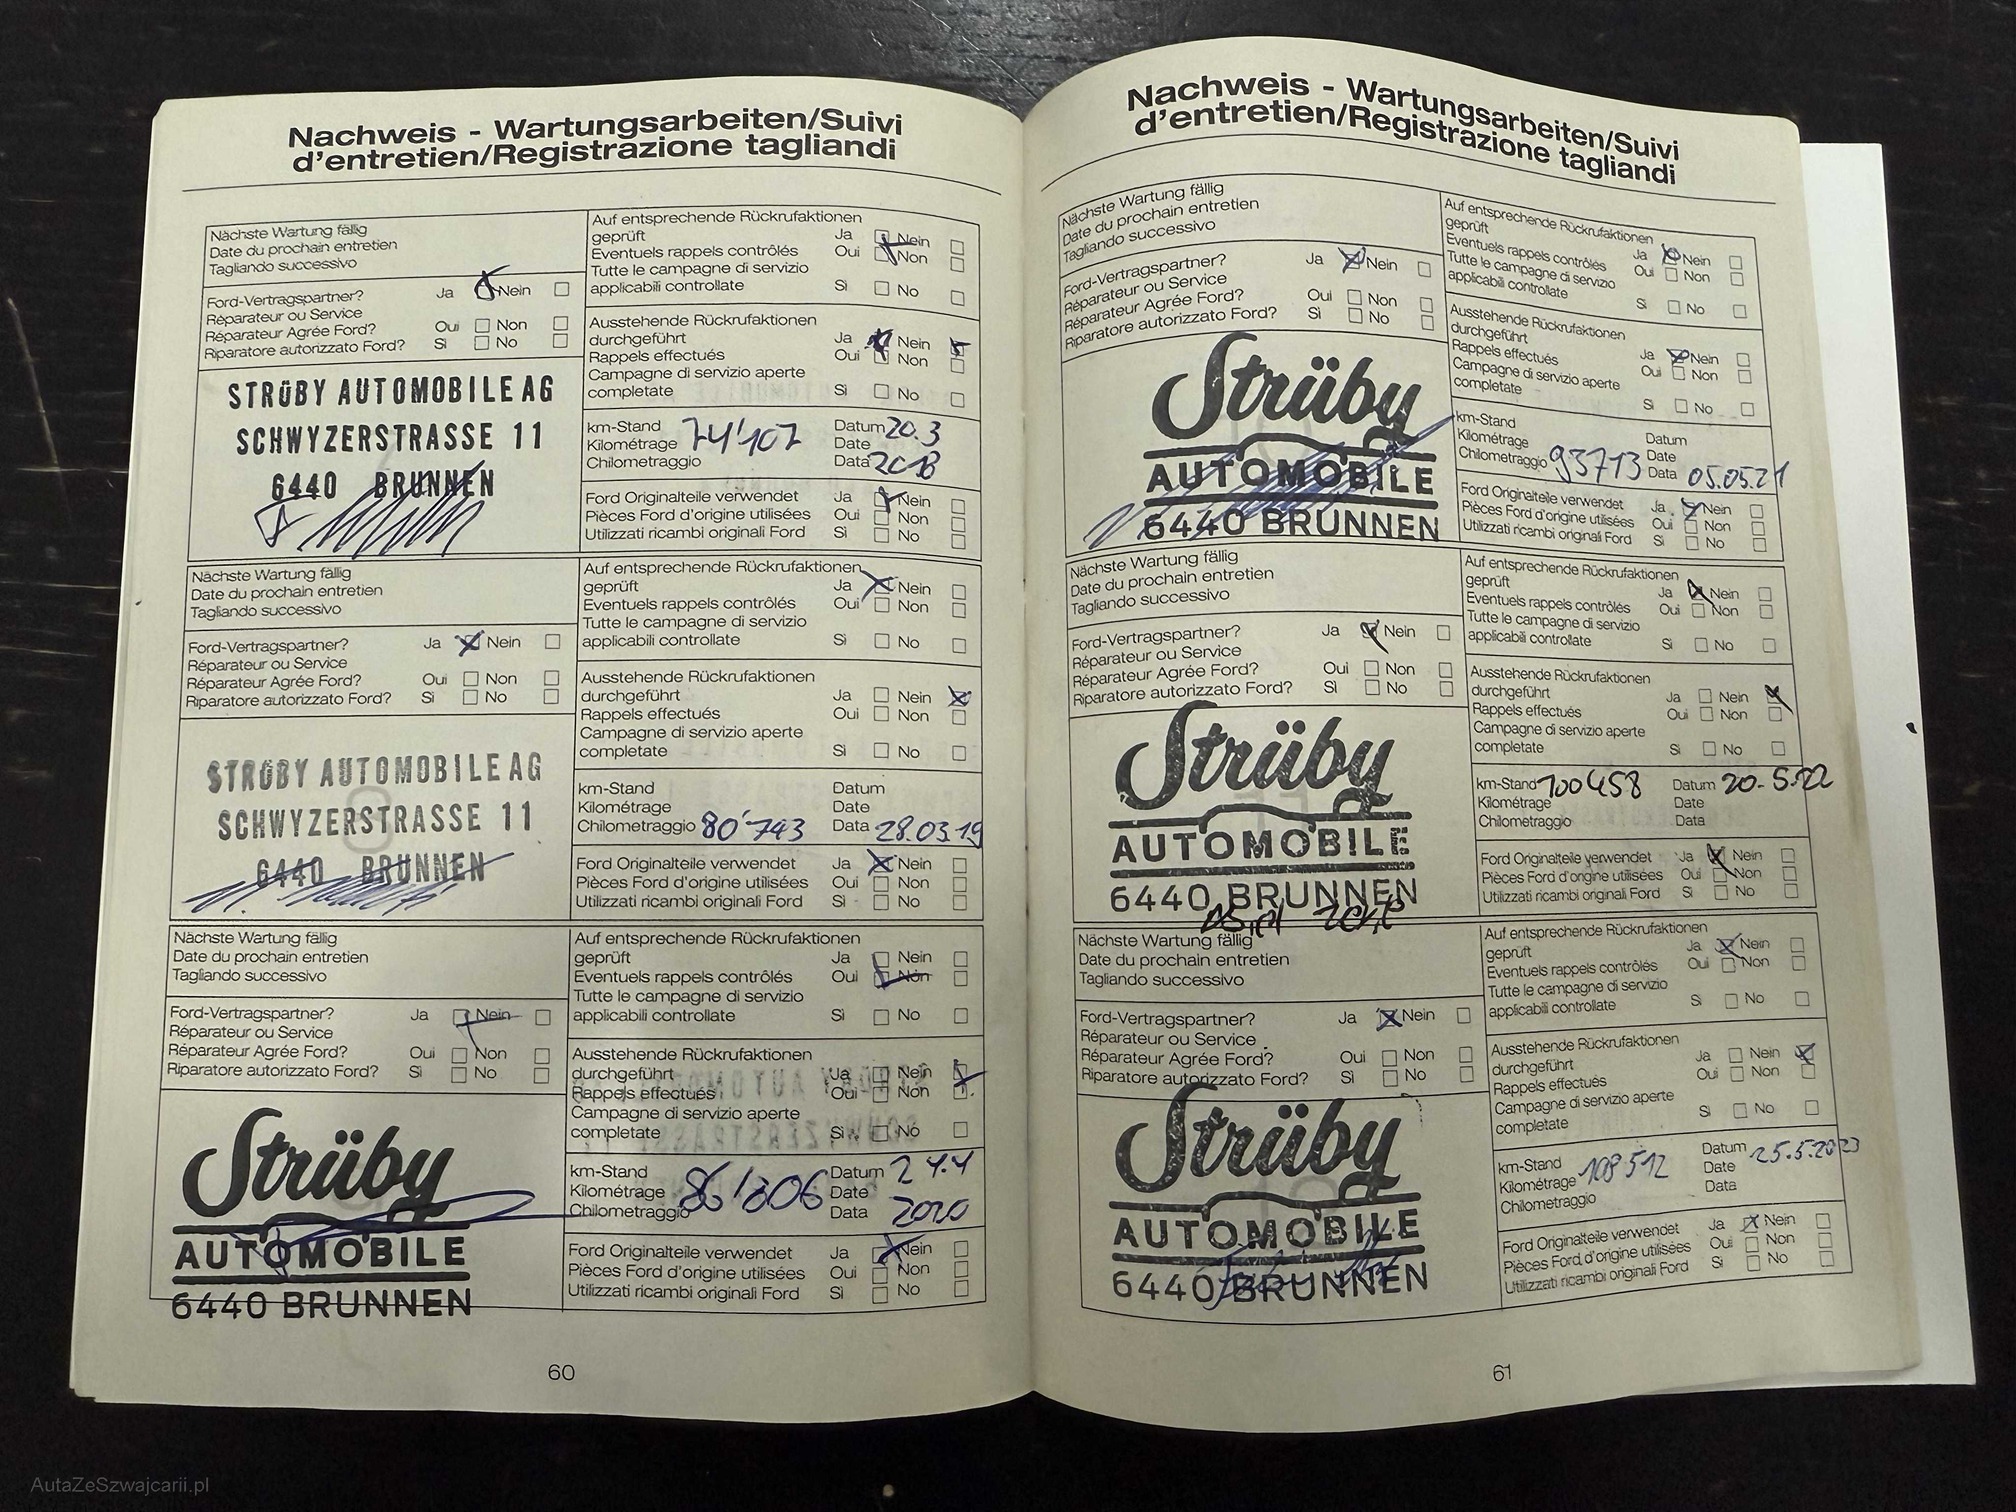 Nachweis - Wartungsarbeiten/Suivi
d'entretien/Registrazione tagliandi
Nächste Wartung fällig
Date du prochain entretien
Tagliando successivo
Ford-Vertragspartner? Ja Nein
Réparateur ou Service
Réparateur Agrée Ford? Oui Non
Riparatore autorizzato Ford? Sì No
STRÜBY AUTOMOBILE AG
SCHWYZERSTRASSE 11
6440 BRUNNEN
Auf entsprechende Rückrufaktionen
geprüft Ja Nein
Eventuels rappels contrôlés Oui Non
Tutte le campagne di servizio
applicabili controllate Sì No
Ausstehende Rückrufaktionen
durchgeführt Ja Nein
Rappels effectués Oui Non
Campagne di servizio aperte
completate Sì No
km-Stand 74'107 Datum 20.3
Kilométrage Date
Chilometraggio Data 2018
Ford Originalteile verwendet Ja Nein
Pièces Ford d'origine utilisées Oui Non
Utilizzati ricambi originali Ford Sì No
Nächste Wartung fällig
Date du prochain entretien
Tagliando successivo
Ford-Vertragspartner? Ja Nein
Réparateur ou Service
Réparateur Agrée Ford? Oui Non
Riparatore autorizzato Ford? Sì No
STRÜBY AUTOMOBILE AG
SCHWYZERSTRASSE 11
6440 BRUNNEN
Auf entsprechende Rückrufaktionen
geprüft Ja Nein
Eventuels rappels contrôlés Oui Non
Tutte le campagne di servizio
applicabili controllate Sì No
Ausstehende Rückrufaktionen
durchgeführt Ja Nein
Rappels effectués Oui Non
Campagne di servizio aperte
completate Sì No
km-Stand Datum
Kilométrage Date
Chilometraggio 80'743 Data 28.03.19
Ford Originalteile verwendet Ja Nein
Pièces Ford d'origine utilisées Oui Non
Utilizzati ricambi originali Ford Sì No
Nächste Wartung fällig
Date du prochain entretien
Tagliando successivo
Ford-Vertragspartner? Ja Nein
Réparateur ou Service
Réparateur Agrée Ford? Oui Non
Riparatore autorizzato Ford? Sì No
Strüby
AUTOMOBILE
6440 BRUNNEN
Auf entsprechende Rückrufaktionen
geprüft Ja Nein
Eventuels rappels contrôlés Oui Non
Tutte le campagne di servizio
applicabili controllate Sì No
Ausstehende Rückrufaktionen
durchgeführt Ja Nein
Rappels effectués Oui Non
Campagne di servizio aperte
completate Sì No
km-Stand Datum 24.4
Kilométrage 86'306 Date
Chilometraggio Data 2020
Ford Originalteile verwendet Ja Nein
Pièces Ford d'origine utilisées Oui Non
Utilizzati ricambi originali Ford Sì No
60
Nachweis - Wartungsarbeiten/Suivi
d'entretien/Registrazione tagliandi
Nächste Wartung fällig
Date du prochain entretien
Tagliando successivo
Ford-Vertragspartner? Ja Nein
Réparateur ou Service
Réparateur Agrée Ford? Oui Non
Riparatore autorizzato Ford? Sì No
Strüby
AUTOMOBILE
6440 BRUNNEN
Auf entsprechende Rückrufaktionen
geprüft Ja Nein
Eventuels rappels contrôlés Oui Non
Tutte le campagne di servizio
applicabili controllate Sì No
Ausstehende Rückrufaktionen
durchgeführt Ja Nein
Rappels effectués Oui Non
Campagne di servizio aperte
completate Sì No
km-Stand Datum
Kilométrage Date
Chilometraggio 93713 Data 05.05.21
Ford Originalteile verwendet Ja Nein
Pièces Ford d'origine utilisées Oui Non
Utilizzati ricambi originali Ford Sì No
Nächste Wartung fällig
Date du prochain entretien
Tagliando successivo
Ford-Vertragspartner? Ja Nein
Réparateur ou Service
Réparateur Agrée Ford? Oui Non
Riparatore autorizzato Ford? Sì No
Strüby
AUTOMOBILE
6440 BRUNNEN
Auf entsprechende Rückrufaktionen
geprüft Ja Nein
Eventuels rappels contrôlés Oui Non
Tutte le campagne di servizio
applicabili controllate Sì No
Ausstehende Rückrufaktionen
durchgeführt Ja Nein
Rappels effectués Oui Non
Campagne di servizio aperte
completate Sì No
km-Stand 100458 Datum 20.5.22
Kilométrage Date
Chilometraggio Data
Ford Originalteile verwendet Ja Nein
Pièces Ford d'origine utilisées Oui Non
Utilizzati ricambi originali Ford Sì No
Nächste Wartung fällig
Date du prochain entretien
Tagliando successivo
Ford-Vertragspartner? Ja Nein
Réparateur ou Service
Réparateur Agrée Ford? Oui Non
Riparatore autorizzato Ford? Sì No
Strüby
AUTOMOBILE
6440 BRUNNEN
Auf entsprechende Rückrufaktionen
geprüft Ja Nein
Eventuels rappels contrôlés Oui Non
Tutte le campagne di servizio
applicabili controllate Sì No
Ausstehende Rückrufaktionen
durchgeführt Ja Nein
Rappels effectués Oui Non
Campagne di servizio aperte
completate Sì No
km-Stand Datum 25.5.2023
Kilométrage 108512 Date
Chilometraggio Data
Ford Originalteile verwendet Ja Nein
Pièces Ford d'origine utilisées Oui Non
Utilizzati ricambi originali Ford Sì No
61
AutaZeSzwajcarii.pl